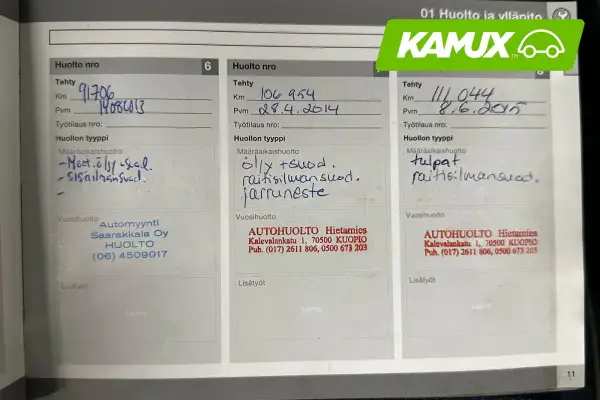 01 Huolto ja ylläpito
KAMUX
Huolto nro 6
Tehty
Km 91706
Pvm
Työtilaus nro:
Huollon tyyppi
Määräaikaishuolto
- Moot. öljy + suod.
- sisäilmansuod.
-
Vuosihuolto
Automyynti
Saarakkala Oy
HUOLTO
(06) 4509017
Lisätyöt
Huolto nro
Tehty
Km 106 954
Pvm 28.4.2014
Työtilaus nro:
Huollon tyyppi
Määräaikaishuolto
öljy + suod.
raitisilmansuod.
jarruneste
Vuosihuolto
AUTOHUOLTO Hietamies
Kalevalankatu 1, 70500 KUOPIO
Puh. (017) 2611 806, 0500 673 203
Lisätyöt
8
Tehty
Km 111 044
Pvm 8.6.2015
Työtilaus nro:
Huollon tyyppi
Määräaikaishuolto
tulpat
raitisilmansuod.
Vuosihuolto
AUTOHUOLTO Hietamies
Kalevalankatu 1, 70500 KUOPIO
Puh. (017) 2611 806, 0500 673 203
Lisätyöt
11